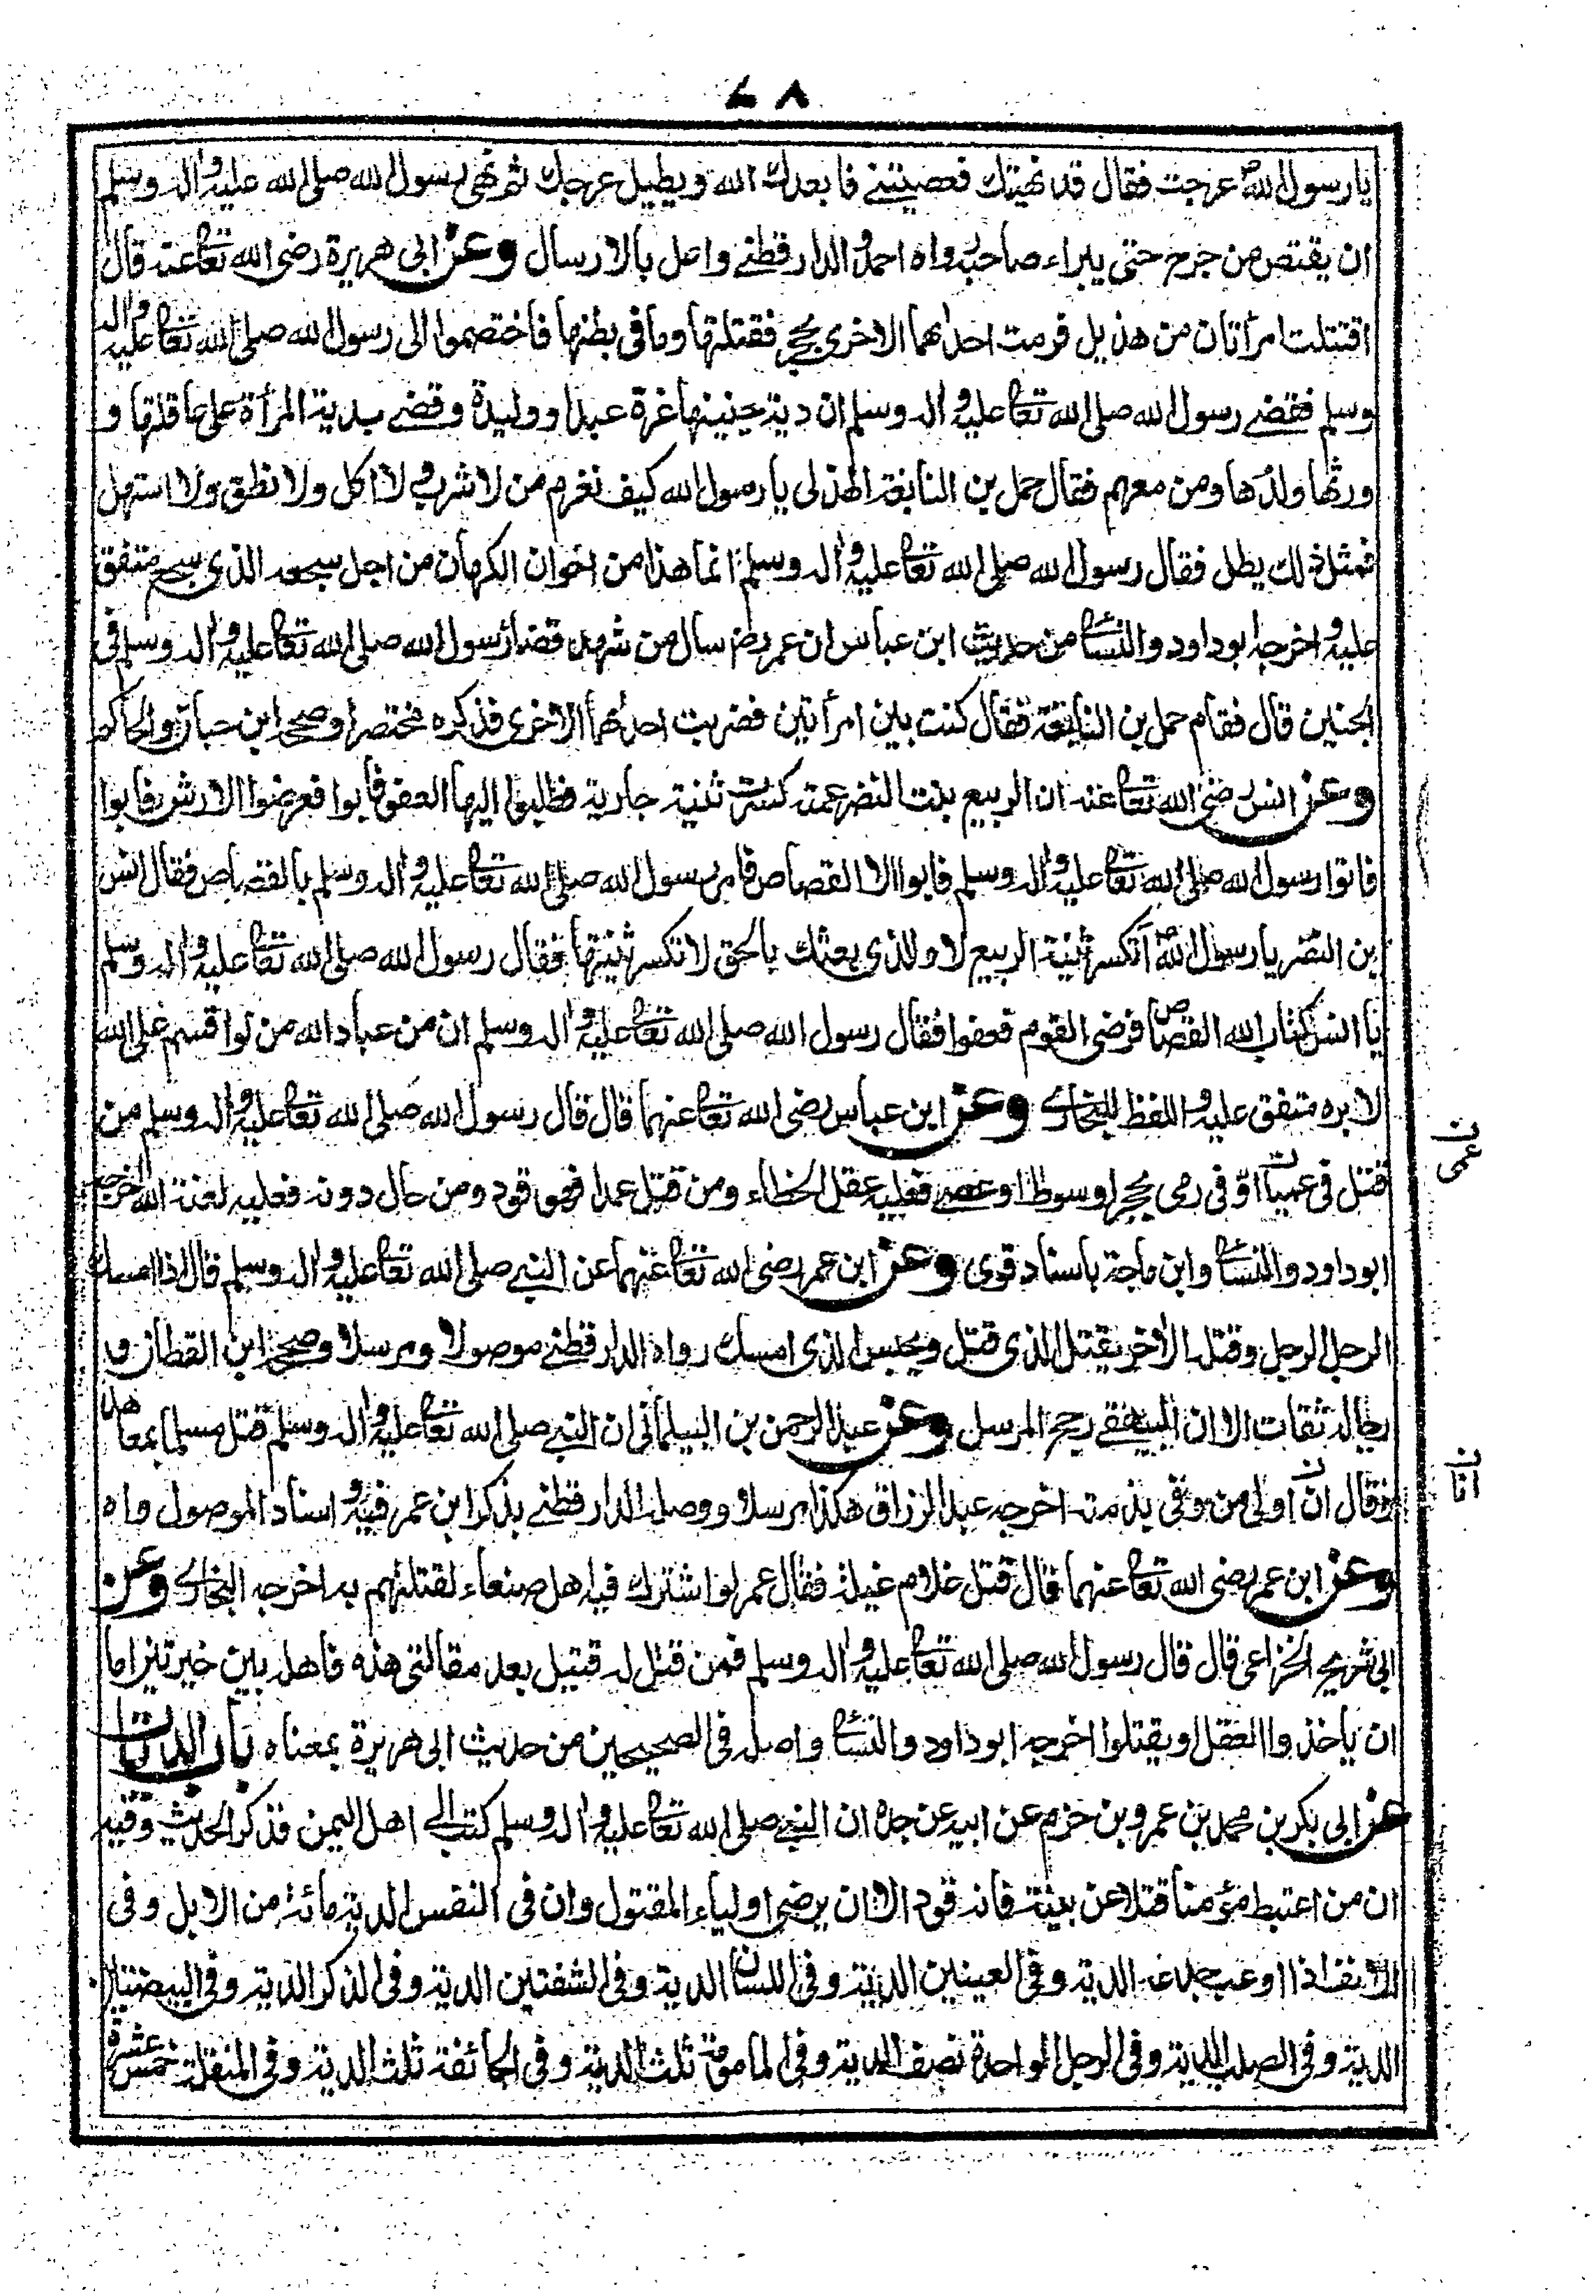 ٧٨
يا رسول الله عرجت فقال قد نهيتك فعصيتني فابعدك الله وبطل عرجك ثم نهى رسول الله صلى الله عليه واله وسلم
ان يقتص من جرح حتى يبراء صاحبه رواه احمد والدارقطني واعل بالارسال وعن ابى هريرة رضى الله تعالى عنه قال
اقتتلت امرأتان من هذيل فرمت احداهما الاخرى بحجر فقتلتها وما فى بطنها فاختصموا الى رسول الله صلى الله تعالى عليه واله
وسلم فقضى رسول الله صلى الله تعالى عليه واله وسلم ان دية جنينها غرة عبد او وليدة وقضى بدية المرأة على عاقلتها و
ورثها ولدها ومن معهم فقال حمل بن النابغة الهذلى يا رسول الله كيف نغرم من لا شرب ولا اكل ولا نطق ولا استهل
فمثل ذلك يطل فقال رسول الله صلى الله تعالى عليه واله وسلم انما هذا من اخوان الكهان من اجل سجعه الذى سجع متفق
عليه واخرجه ابو داود والنسائى من حديث ابن عباس ان عمر رض سال من شهد قضاء رسول الله صلى الله تعالى عليه واله وسلم فى
الجنين قال فقام حمل بن النابغة فقال كنت بين امرأتين فضربت احداهما الاخرى فذكره مختصرا وصححه ابن حبان والحاكم
وعن انس رضى الله تعالى عنه ان الربيع بنت النضر عمته كسرت ثنية جارية فطلبوا اليها العفو فابوا فعرضوا الارش فابوا
فاتوا رسول الله صلى الله تعالى عليه واله وسلم فابوا الا القصاص فامر رسول الله صلى الله تعالى عليه واله وسلم بالقصاص فقال انس
بن النضر يا رسول الله أتكسر ثنية الربيع لا والذى بعثك بالحق لا تكسر ثنيتها فقال رسول الله صلى الله تعالى عليه واله وسلم
يا انس كتاب الله القصاص فرضى القوم فعفوا فقال رسول الله صلى الله تعالى عليه واله وسلم ان من عباد الله من لو اقسم على الله
لابره متفق عليه واللفظ للبخارى وعن ابن عباس رضى الله تعالى عنهما قال قال رسول الله صلى الله تعالى عليه واله وسلم من
قتل فى عميا او فى رمى بحجر او سوط او عصى فعليه عقل الخطاء ومن قتل عمدا فهو قود ومن حال دونه فعليه لعنة الله اخرجه
ابو داود والنسائى وابن ماجة باسناد قوى وعن ابن عمر رضى الله تعالى عنهما عن النبى صلى الله تعالى عليه واله وسلم قال اذا امسك
الرجل الرجل وقتله الاخر يقتل الذى قتل ويحبس الذى امسك رواه الدارقطني موصولا ومرسلا وصححه ابن القطان و
رجاله ثقات الا ان البيهقى رجح المرسل وعن عبد الرحمن بن البيلمانى ان النبى صلى الله تعالى عليه واله وسلم قتل مسلما بمعاهد
وقال ان اولى من وفى بذمته اخرجه عبد الرزاق هكذا مرسلا ووصله الدارقطني بذكر ابن عمر فيه واسناد الموصول واه
وعن ابن عمر رضى الله تعالى عنهما قال قتل غلام غيلة فقال عمر لو اشترك فيه اهل صنعاء لقتلتهم به اخرجه البخارى وعن
ابى شريح الخزاعى قال قال رسول الله صلى الله تعالى عليه واله وسلم فمن قتل له قتيل بعد مقالتى هذه فاهله بين خيرتين اما
ان ياخذوا العقل او يقتلوا اخرجه ابو داود والنسائى واصله فى الصحيحين من حديث ابى هريرة بمعناه باب الديات
عن ابى بكر بن محمد بن عمرو بن حزم عن ابيه عن جده ان النبى صلى الله تعالى عليه واله وسلم كتب الى اهل اليمن فذكر الحديث وفيه
ان من اعتبط مؤمنا قتلا عن بينة فانه قود الا ان يرضى اولياء المقتول وان فى النفس الدية مائة من الابل وفى
الانف اذا اوعب جدعه الدية وفى العينين الدية وفى اللسان الدية وفى الشفتين الدية وفى الذكر الدية وفى البيضتين
الدية وفى الصلب الدية وفى الرجل الواحدة نصف الدية وفى المامومة ثلث الدية وفى الجائفة ثلث الدية وفى المنقلة خمس عشرة
ن
عمى
ن
انا